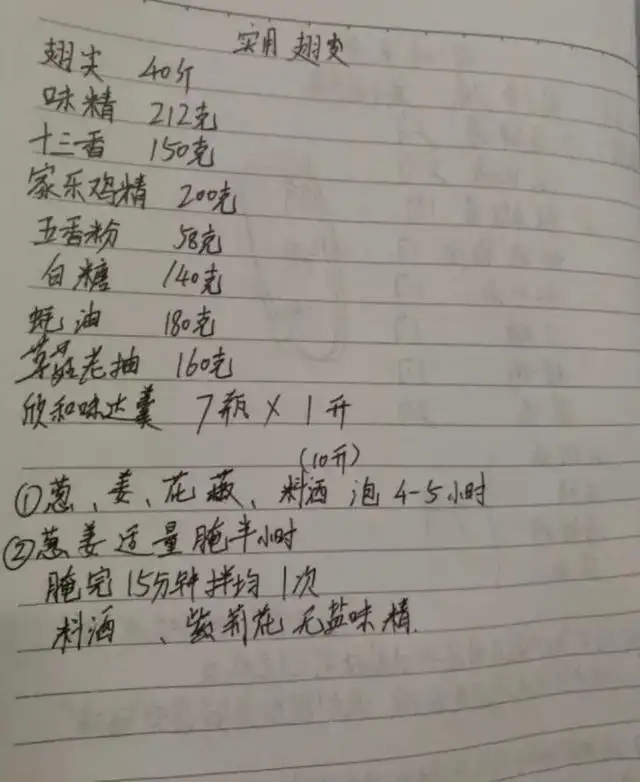 实用翅尖
翅尖 40斤
味精 212克
十三香 150克
家乐鸡精 200克
五香粉 58克
白糖 140克
蚝油 180克
草菇老抽 160克
欣和味达美 7瓶 X 1升
(10升)
①葱、姜、花菽、料洒 泡 4-5小时
②葱姜适量腌半小时
腌完15分钟拌均1次
料酒、紫莉花无盐味精.